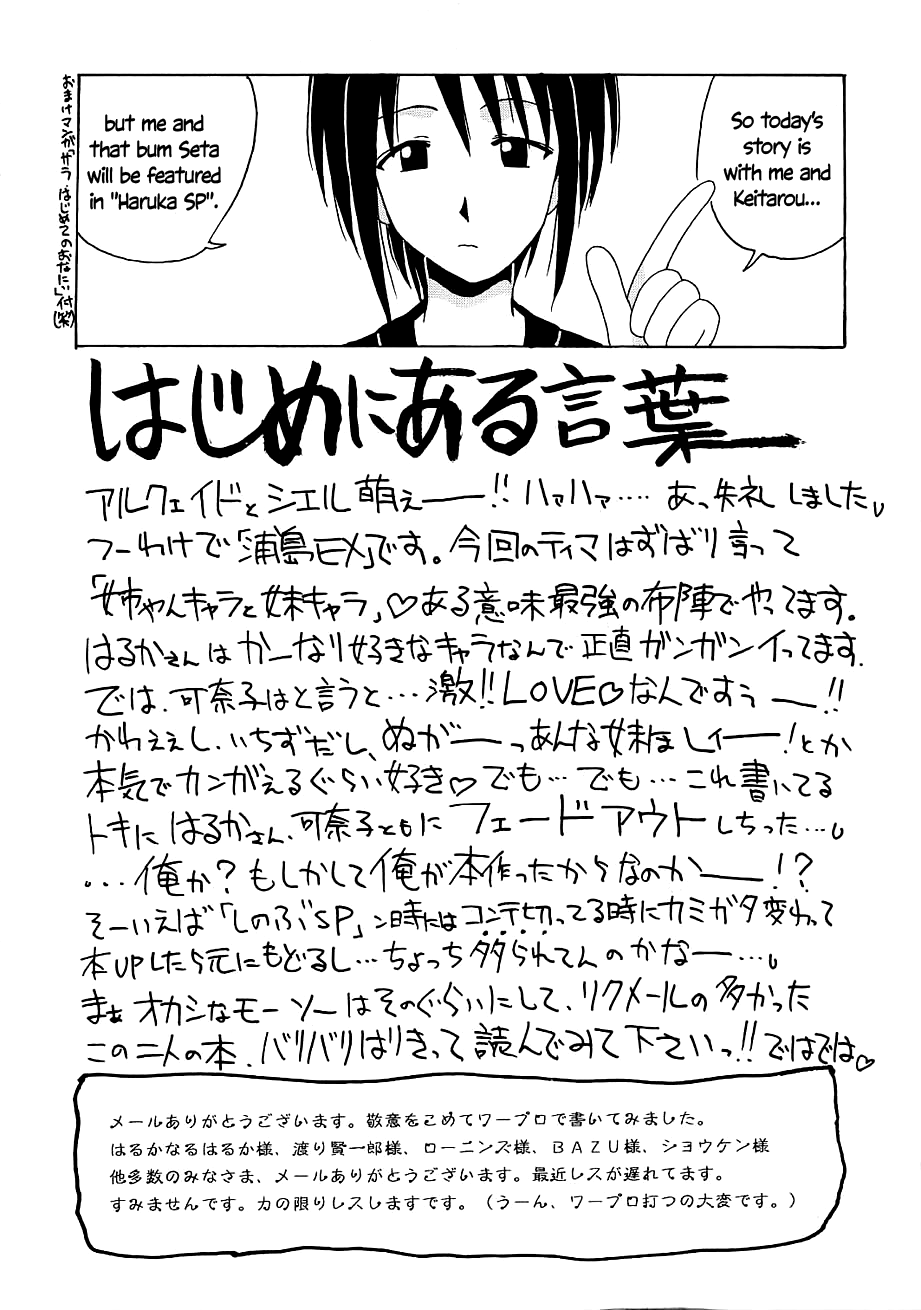 So today's
story is
with me and
Keitarou...
but me and
that bum Seta
will be featured
in "Haruka SP".
はじめにある言葉
アルクェイドとシエル萌えー!!ハァハァ‥‥あっ失礼しました
つーわけで「浦島EX」です。今回のテイマはずばり言って
「姉ちゃんキャラと妹キャラ」♡ある意味最強の布陣でやってます。
はるかさんはかーなり好きなキャラなんで正直ガンガンイってます.
では、可奈子はと言うと…激!!LOVE♡なんですぅー!!
かわええし、いちずだし、ぬがーっあんな妹ほしィー!とか
本気でカンがえるぐらい好き♡でも…でも…これ書いてる
トキにはるかさん、可奈子ともにフェードアウトしちった…
…俺か?もしかして俺が本作ったからなのかー!?
そーいえば「しのぶSP」ン時にはコンテ切ってる時にカミガタ変わって
本UPしたら元にもどるし…ちょっち られてんのかなー…
まぁオカシなモーソーはそのぐらいにして、リクメールの多かった
この二人の本、バリバリはりきって読んでみて下さいっ!!ではでは♡
メールありがとうございます。敬意をこめてワープロで書いてみました。
はるかなるはるか様、渡り賢一郎様、ローニンズ様、BAZU様、ショウケン様
他多数のみなさま、メールありがとうございます。最近レスが遅れてます。
すみませんです。力の限りレスしますです。（うーん、ワープロ打つの大変です。）